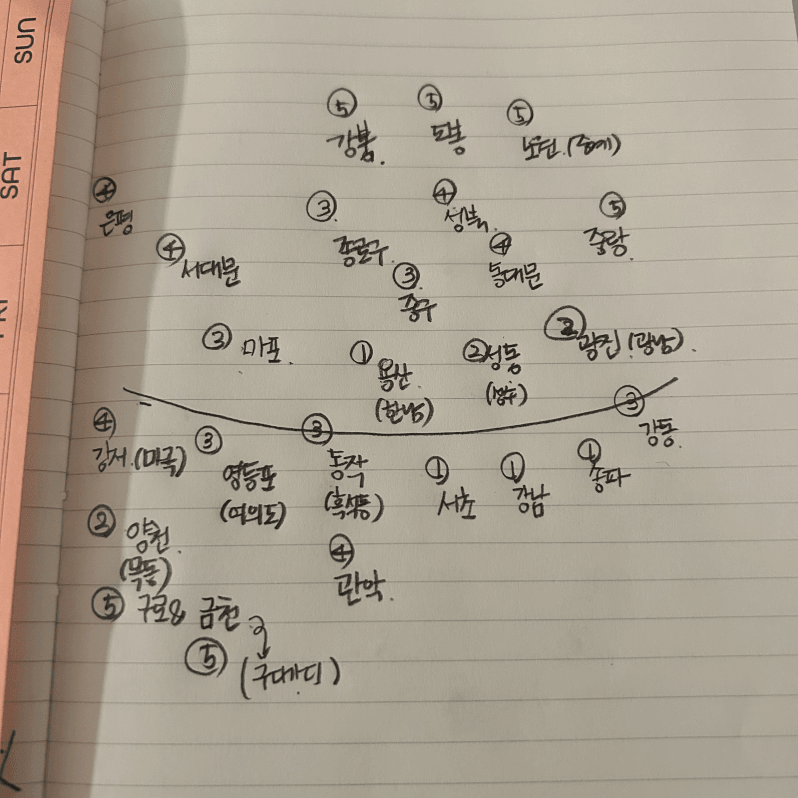 SUN
SAT
⑤ ⑤ ⑤
강북. 도봉 노원.(중계)
④ ③. ④ ⑤
은평 성북.
④ 서대문 종로구. ④ 중랑.
③. 동대문
중구
③ 마포. ① ② 성동 ② 광진 (광남).
용산 (성수)
(한남)
③
④ ③ ③ 강동.
강서.(마곡) 영등포 동작 ① ① ①
(여의도) (흑석동) 서초 강남 송파
② 양천. ④
(목동) 관악.
⑤ 구로& 금천.
⑤ (구디가디)